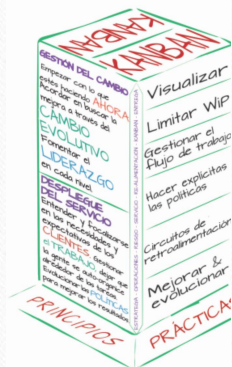 KANBAN
KANBAN
GESTIÓN DEL CAMBIO
Empezar con lo que
estés haciendo AHORA
Acordar en buscar la
mejora a través del
CAMBIO
EVOLUTIVO
Fomentar el
LIDERAZGO
en cada nivel
DESPLIEGUE
DEL SERVICIO
Entender y focalizarse
en las necesidades y
expectativas de los
CLIENTES. Gestionar
el TRABAJO, dejar que
la gente se auto-organice
alrededor de las tareas
Evolucionar las POLÍTICAS
para mejorar los resultados
PRINCIPIOS
Visualizar
Limitar WiP
Gestionar el
flujo de trabajo
Hacer explícitas
las políticas
Circuitos de
retroalimentación
Mejorar &
evolucionar
PRÁCTICA